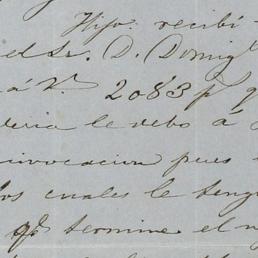 Hijo: recibí
el Sr. D. Doming
á V. 2083 p q
deria le debo á
nvocacion pues
os cuales le teng
qe termine el n